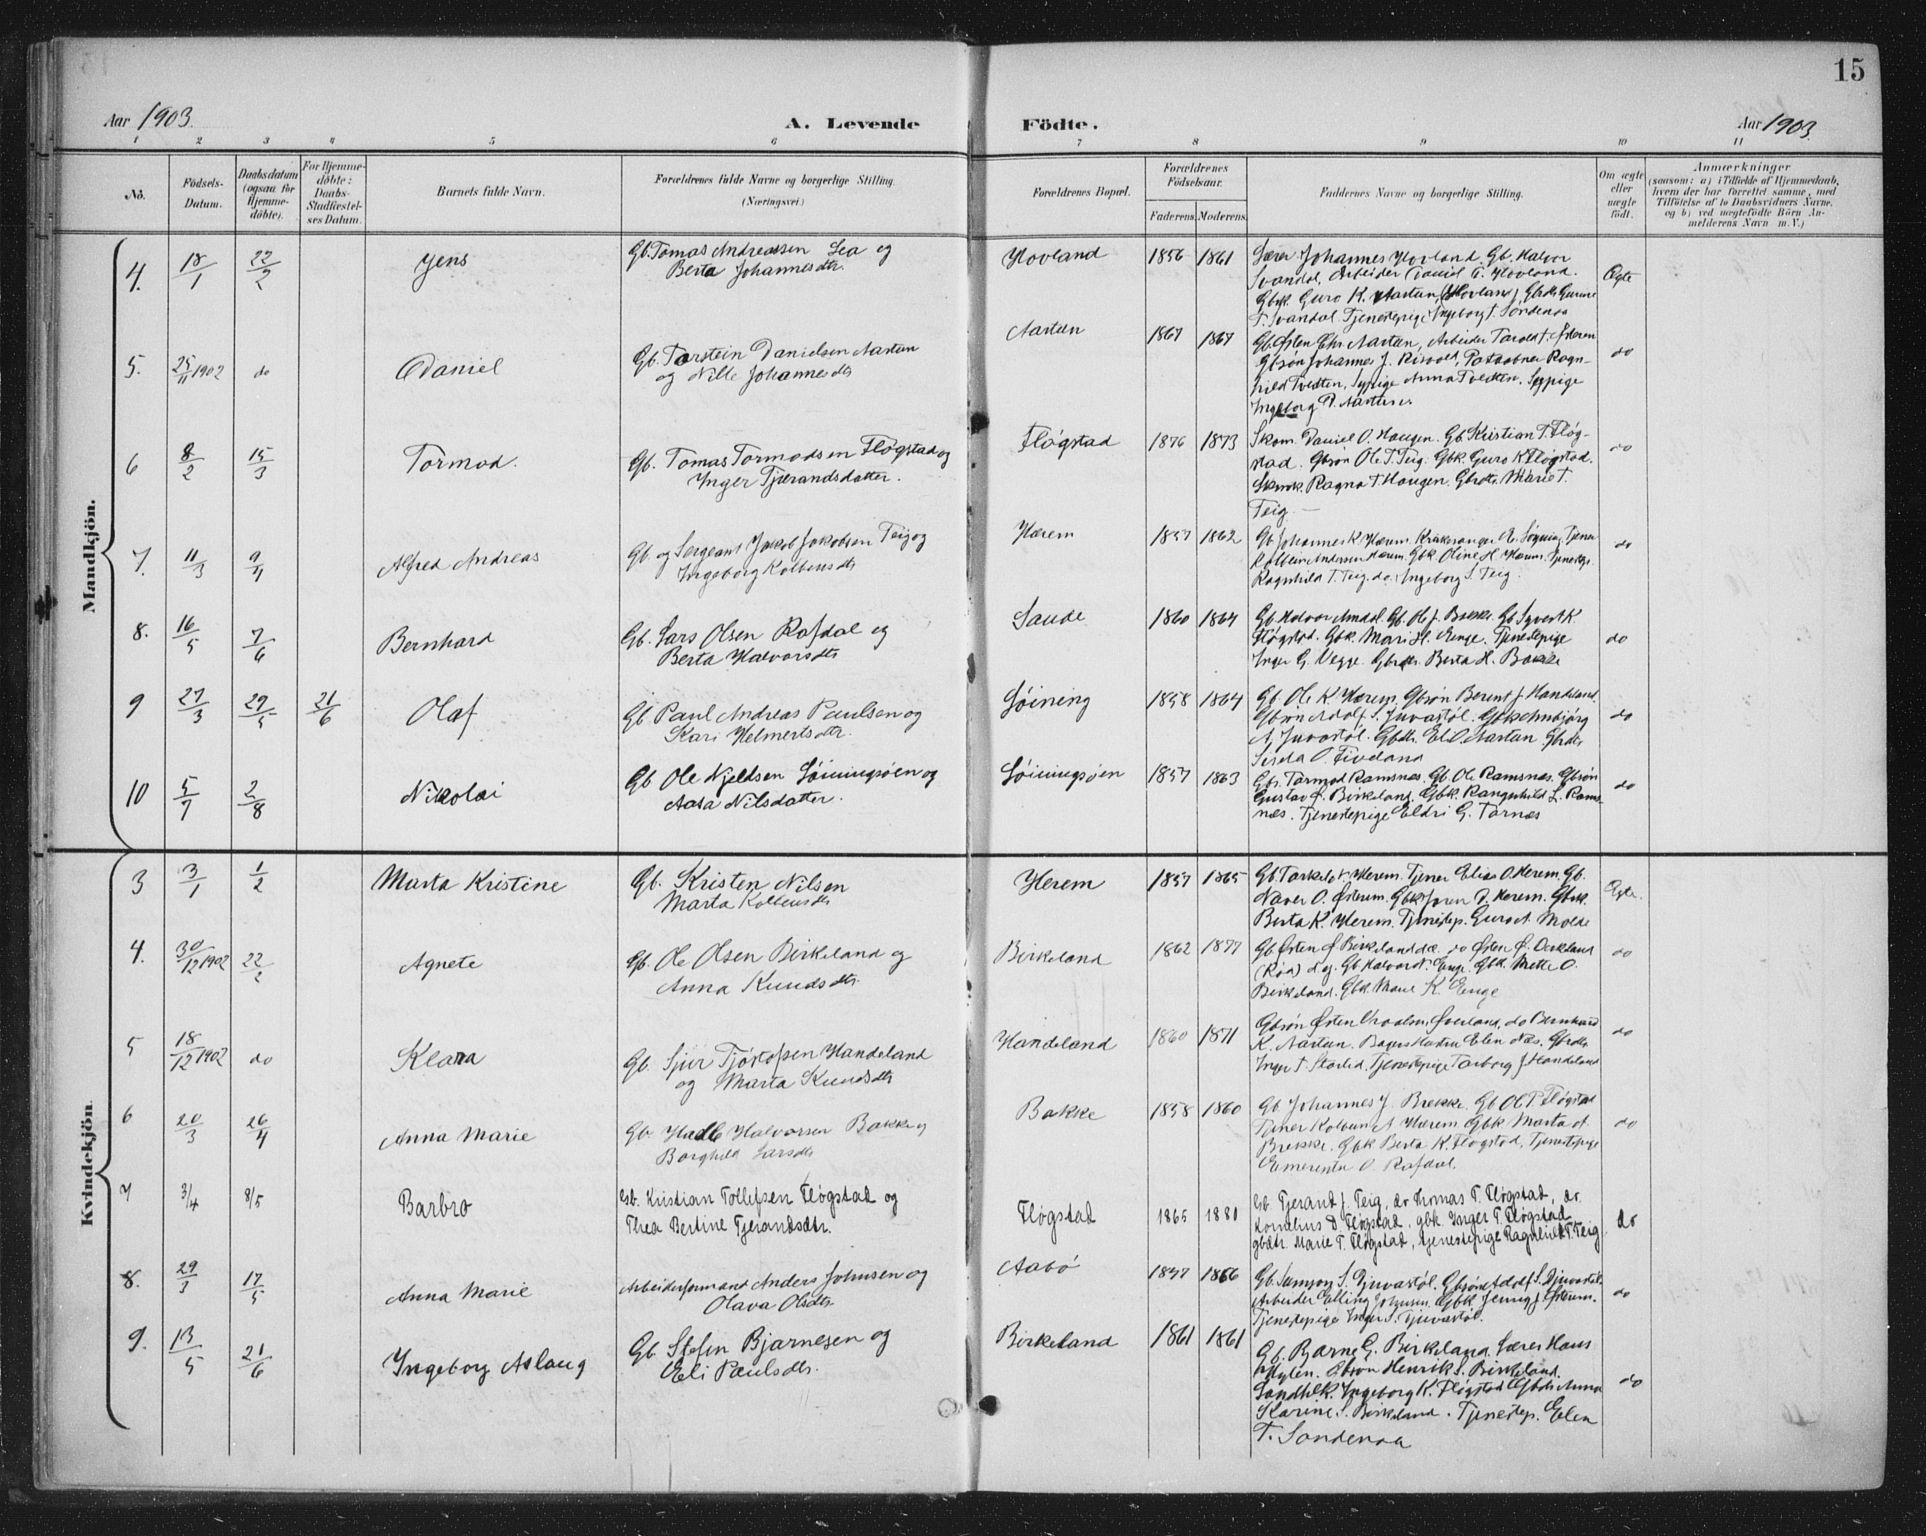 15
Aar 1903.
A. Levende
Födte.
Aar 1903
1 2 3 4 5 6 7 8 9 10 11
No.
Födsels-
Datum.
Daabsdatum
(ogsaa for
Hjemme-
döbte).
For Hjemme-
döbte:
Daabs-
Stadfæstel-
ses Datum.
Barnets fulde Navn.
Forældrenes fulde Navne og borgerlige Stilling.
(Næringsvei)
Forældrenes Bopæl.
Forældrenes
Födselsaar.
Faderens. Moderens.
Faddernes Navne og borgerlige Stilling.
Om ægte
eller
uægte
födt.
Anmærkninger
(saasom: a) i Tilfælde af Hjemmedaab,
hvem der har forrettet samme, med
Tilföielse af to Daabsvidners Navne,
og b) ved uegtefödte Börn An-
melderens Navn m.V.)
Mandkjön.
4. 18/1 22/2 Jens
Gb. Tomas Andreassen Lea og
Berta Johannesdtr.
Hovland 1856 1861
Lærer Johannes Hovland. Gb. Halvor
Svandal, Arbeider Daniel T. Hovland.
Gbk. Guro K. Aartun (Hovland), Gbrdtr Gunne
T. Svandal. Tjenestepige Ingeborg T. Søndenaa
Ægte
5. 25/11 1902 do Daniel
Gb. Torstein Danielsen Aartun
og Nille Johannesdtr
Aartun 1867 1867
Gb. Østen Chr. Aartun, Arbeider Tarald T. Østerem
Gbsøn Johannes J. Risvold,
hild Tvedten, Sypige Anna Tvedten. Sypige
Ingeborg P. Aartun
do
6 8/2 15/3 Tormod.
Gb. Tomas Tormodsen Fløgstad og
Inger Tjærandsdatter.
Fløgstad 1876 1873
Skom. Daniel O. Haugen. Gb. Kristian T. Fløg-
stad. Gbsøn Ole T. Teig. Gbk. Guro K. Fløgstad.
Skmk. Ragna T. Haugen. Gbrdtr. Marie T.
Teig. —
do
7. 11/3 9/4 Alfred Andreas
Gb. og Sergeant Jakob Jakobsen Teig og
Ingeborg Kolbensdtr
Hærem 1857 1862
Gb. Johannes K. Hærem.
Kolbein Andersen Hærem. Gbk. Oline H. Hærem. Tjenestep.
Ragnhild T. Teig. do. Ingeborg S. Teig.
do
8. 16/5 7/6 Bernhard
Gb. Lars Olsen Rafdal og
Berta Halvorsdtr
Saude 1860 1864
Gb. Halvor Amdal. Gb. Ole J. Bakke. Gb Syvert K.
Fløgstad. Gbk. Mari H. Enge. Tjenestepige
Inger G. Vegge. Gbrdtr. Berta H. Bakke
do
9 27/3 29/5 21/6 Olaf
Gb Paul Andreas Paulsen og
Kari Helmertsdtr.
Løining 1858 1864
Gb. Ole K. Hærem. Gbsøn Berent J. Handeland.
Gbsøn Adolf S. Juvastøl. Gbk Anbjørg
A. Juvastøl. Gbdtr. Eli O. Aartun. Gbrdtr
O. Fiveland
do
10 5/7 2/8 Nikolai
Gb Ole Njeldsen Løiningsøen og
Aasa Nilsdatter.
Løiningsøen 1857 1863
Gb. Tormod Ramsnæs. Gb. Ole Ramsnæs. Gbsøn
Gustav Ø. Birkeland. Gbk. Rangnhild L. Rams-
næs. Tjenestepige Eldri G. Tornæs
do
Kvindekjön.
3 3/1 1/2 Marta Kristine
Gb. Kristen Nilsen
Marta Kolbensdtr
Herem 1857 1865
Gb. Torkel Herem. Tjener Elias O. Herem. Gb.
Naver O. Østerem. Gbk. Joren D. Herem. Gbk.
Berta K. Herem. Tjenestep. Guro A. Molde
Ægte.
4. 30/12 1902 22/2 Agnete
Gb. Ole Olsen Birkeland og
Anna Knudsdtr.
Birkeland 1862 1877
Gb. Østen Ø. Birkeland d.æ. do Østen Ø.
(Røa) d.y. Gb. Halvor N. Enge. Gbk. Mette O.
Birkeland. Gbk. Marie K. Enge
do
5 18/12 1902 do Klara
Gb. Sjur Tjøstofsen Handeland
og Marta Knudsdtr
Handeland 1860 1871
Gbsøn Østen Overland, do Bernhard
K. Aartun. Elen Næs. Gbrdtr
Inger T. Tjenestepige Torborg J. Handeland
do
6 20/3 26/4 Anna Marie
Gb. Halvorsen Bakke og
Borghild Larsdtr
Bakke 1858 1860
Gb. Johannes J. Brekke. Gb Ole P. Fløgstad
Tjener Kolben A Hærem. Gbk Marta A.
Brekke. Gbk Berta K. Fløgstad, Tjenestepige
Emerentse O. Rafdal.
do
7 3/4 8/5 Barbro
Gb. Kristian Tollefsen Fløgstad og
Thea Bertine Tjerandsdtr.
Fløgstad 1865 1881
Gb. Tjerand J. Teig, do Thomas T. Fløgstad, do
Kornelius D. Fløgstad, gbk. Inger T. Fløgstad
gbdtr. Marie T. Fløgstad, tjenestepige Ragnhild T. Teig
do
8. 29/3 17/5 Anna Marie
Arbeiderformand Anders Johnsen og
Olava Olsdtr.
Aabö 1857 1866
Gb. Samson S. Djuvastøl. Gbsøn Adolf S. Djuvastøl.
Arbeider Elling Johnsen. Gbk Jenny J Østerem.
Tjenestepige Inger S. Djuvastøl.
do
9. 13/5 21/6 Ingeborg Aslaug
Gb. Stefen Bjarnesen og
Eli Paulsdtr.
Birkeland 1861 1861
Gb. Barne G. Birkeland. Lærer Hans
Gbsøn Henrik S. Birkeland.
Landhlk. Ingeborg K. Fløgstad. Gbdtr Anna
Karine S. Birkeland. Tjenestep. Elen
T. Søndenaa
do